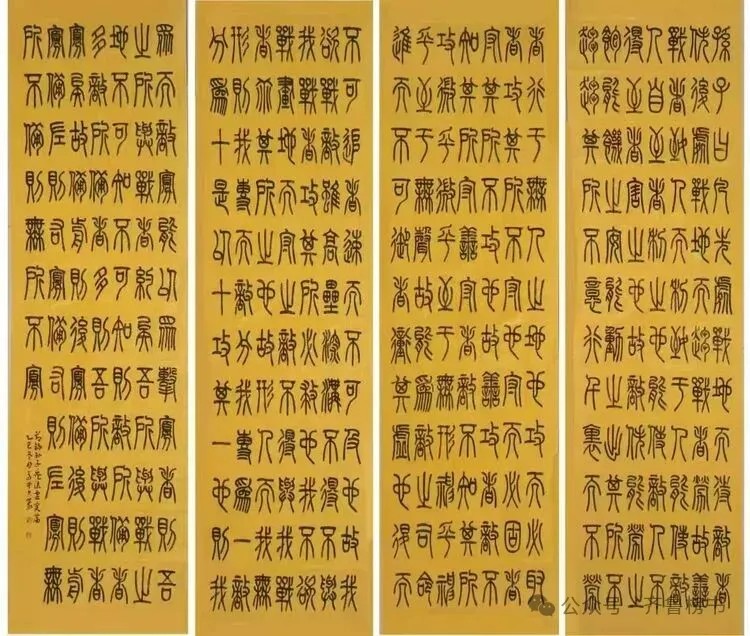 孫子曰凡先處戰地而待敵者
佚後處戰地而趨戰者勞故善
戰者致人而不致于人能使敵
人自至者利之也能使敵人不
得至者害之也故敵佚能勞之
飽能饑之安能動之出其所不
趨趨其所不意行千里而不勞
者行于無人之地也攻而必取
者攻其所不守也守而必固者
守其所不攻也故善攻者敵不
知其所守善守者敵不知其所
攻微乎微乎至于無形神乎神
乎至于無聲故能為敵之司命
進而不可禦者衝其虛也退而
不可追者速而不可及也故我
欲戰敵雖高壘深溝不得不與
我戰者攻其所必救也我不欲
戰畫地而守之敵不得與我戰
者乖其所之也故形人而我無
形則我專而敵分我專為一敵
分為十是以十攻其一也則我
眾而敵寡能以眾擊寡者則吾
之所與戰者約矣吾所與戰之
地不可知不可知則敵所備者
多敵所備者多則吾所與戰者
寡矣故備前則後寡備後則前
寡備左則右寡備右則左寡無
所不備則無所不寡
節錄孫子兵法虛實篇
公众号·齐鲁榜书